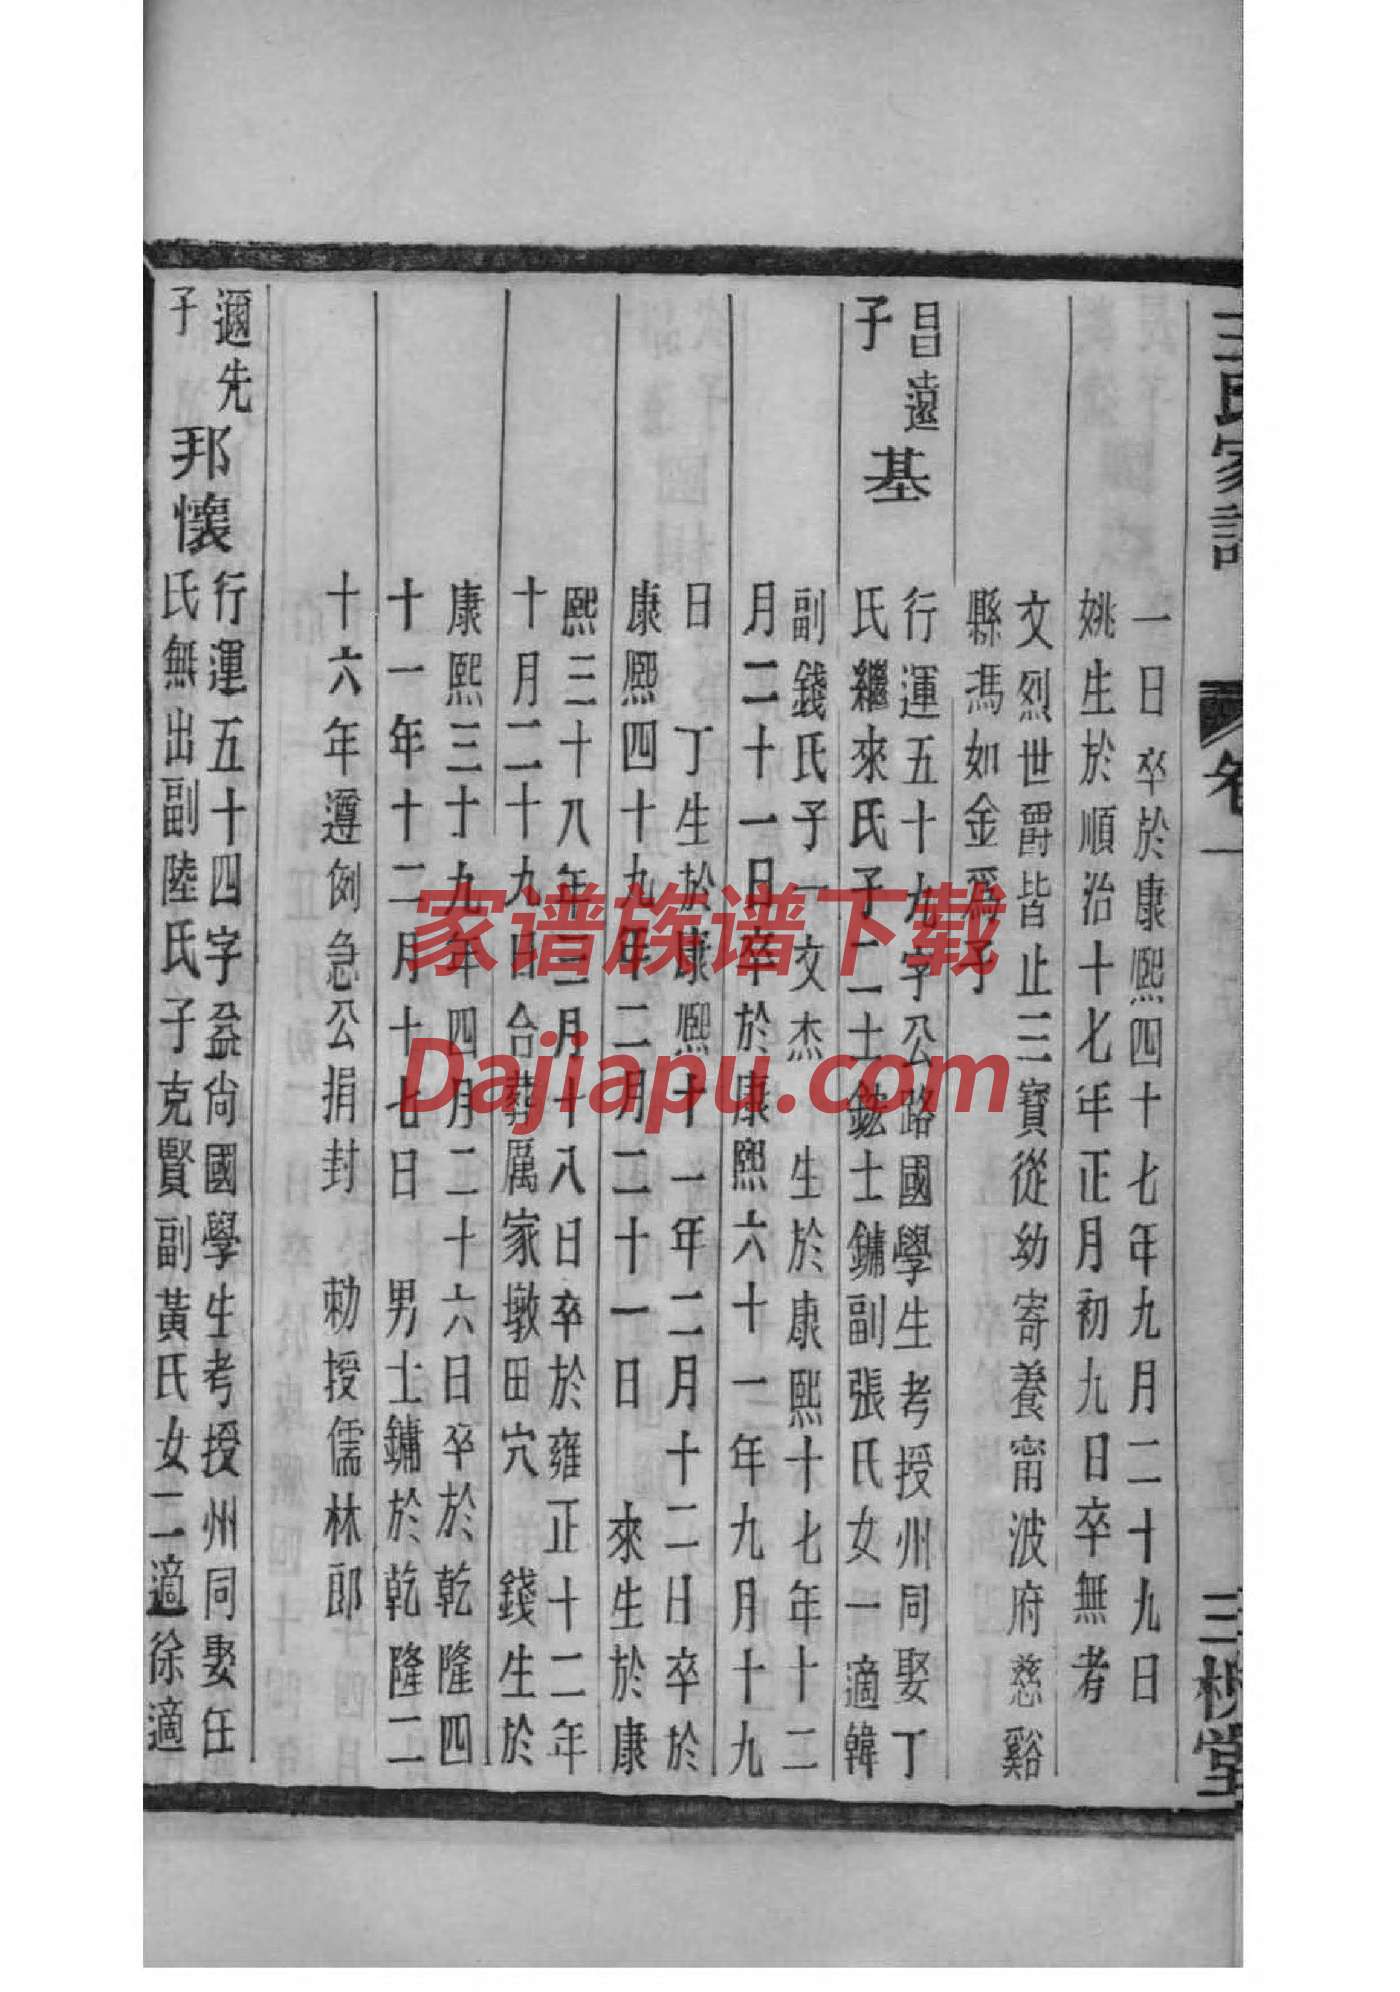 王氏家譜
卷一
三槐堂
一日卒於康熙四十七年九月二十九日
姚生於順治十七年正月初九日卒無考
文烈世爵皆止三寶從幼寄養甯波府慈谿
縣馮如金爲子
昌遠
子
基
行運五十九字公路國學生考授州同娶丁
氏繼來氏子二士鋐士鏞副張氏女一適韓
副錢氏子一文杰 生於康熙十七年十二
月二十一日卒於康熙六十一年九月十九
日 丁生於康熙十一年二月十二日卒於
康熙四十九年二月二十一日 來生於康
熙三十八年三月十八日卒於雍正十二年
十月二十九日合葬厲家墩田穴 錢生於
康熙三十九年四月二十六日卒於乾隆四
十一年十二月十七日 男士鏞於乾隆二
十六年遵例急公捐封 勅授儒林郎
邇先
子
邦懷
行運五十四字益尙國學生考授州同娶任
氏無出副陸氏子克賢副黃氏女二適徐適
家谱族谱下载
Dajiapu.com